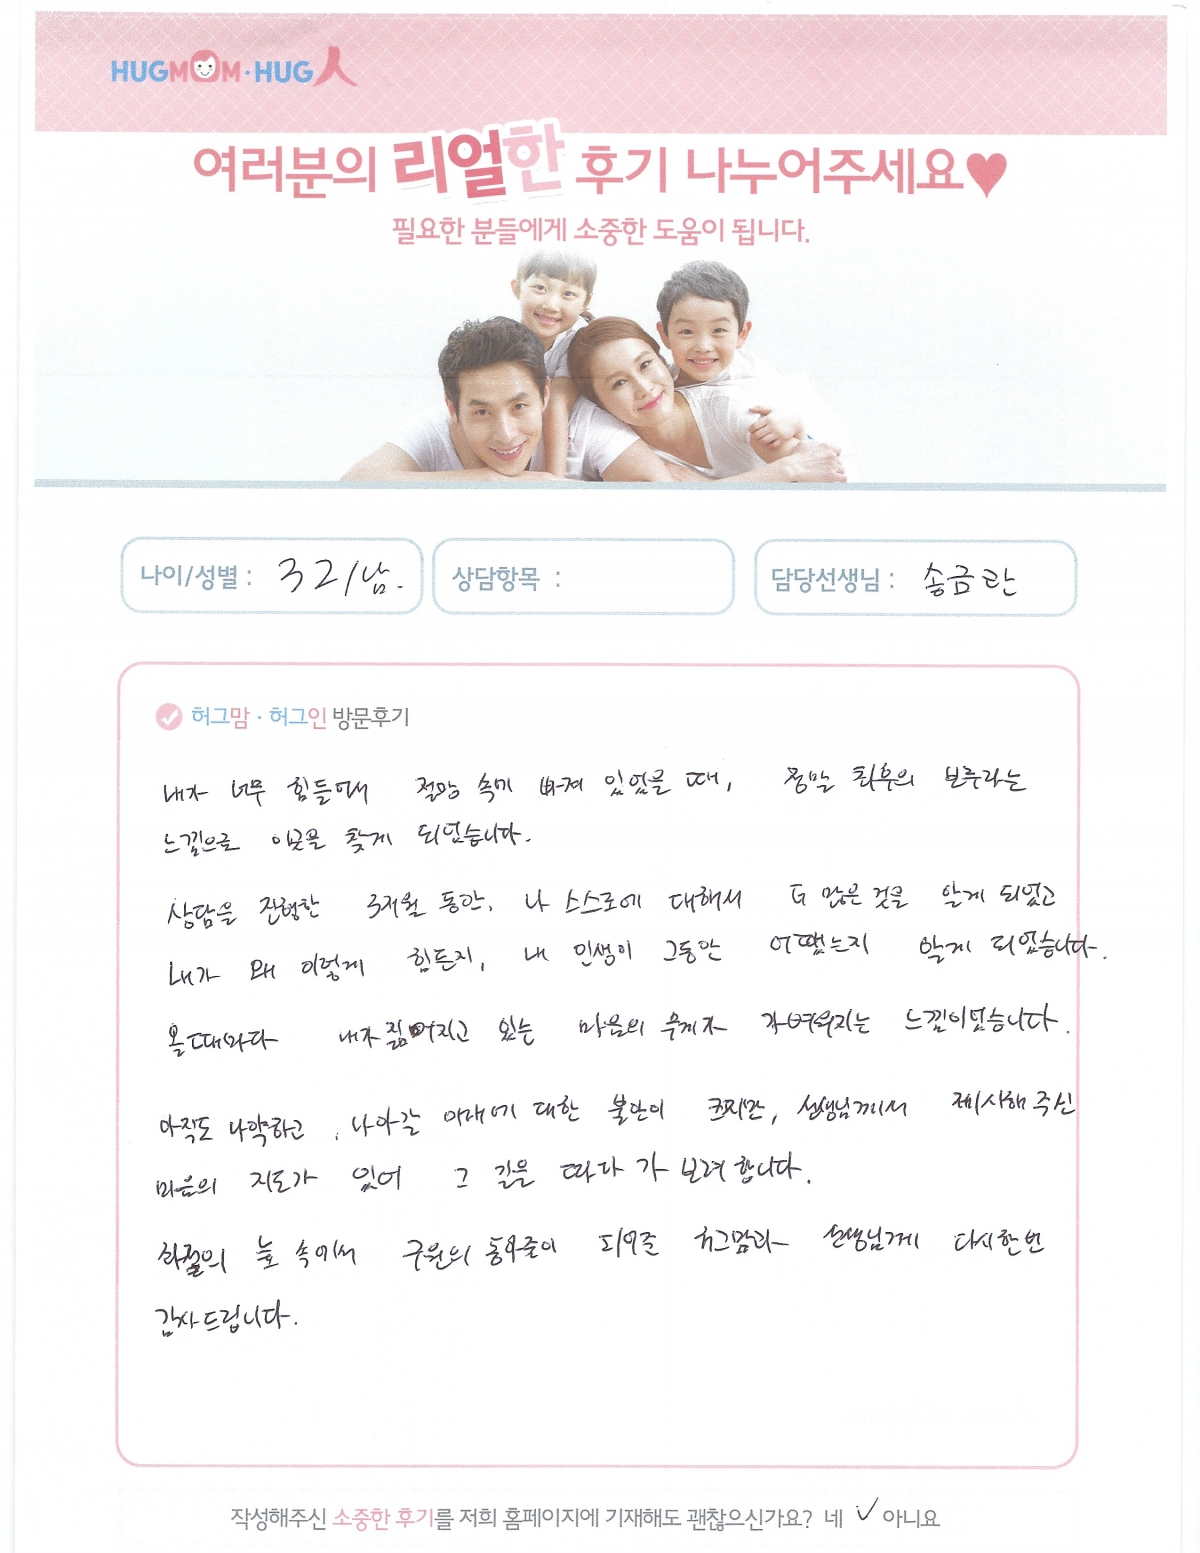 HUGMOM·HUG人
여러분의 리얼한 후기 나누어주세요♥
필요한 분들에게 소중한 도움이 됩니다.
나이/성별 : 32/남.
상담항목 :
담당선생님 : 송금란
허그맘·허그인 방문후기
내가 너무 힘들어서 절망 속에 빠져 있었을 때, 정말 최후의 보루라는
느낌으로 이곳을 찾게 되었습니다.
상담을 진행한 3개월 동안, 나 스스로에 대해서 더 많은 것을 알게 되었고
내가 왜 이렇게 힘든지, 내 인생이 그동안 어땠는지 알게 되었습니다.
올때마다 내가 짊어지고 있는 마음의 무게가 가벼워지는 느낌이었습니다.
아직도 나약하고, 나아갈 미래에 대한 불안이 크지만, 선생님께서 제시해 주신
마음의 지도가 있어 그 길을 따라 가 보려 합니다.
좌절의 늪 속에서 구원의 동아줄이 되어준 허그맘과 선생님께 다시한번
감사드립니다.
작성해주신 소중한 후기를 저희 홈페이지에 기재해도 괜찮으신가요? 네 ✓ 아니요